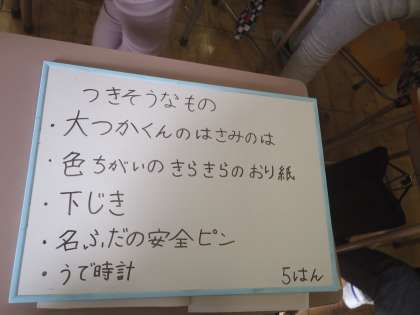 つきそうなもの
・大つかくんのはさみのは
・色ちがいのきらきらのおり紙
・下じき
・名ふだの安全ピン
・うで時計
5はん